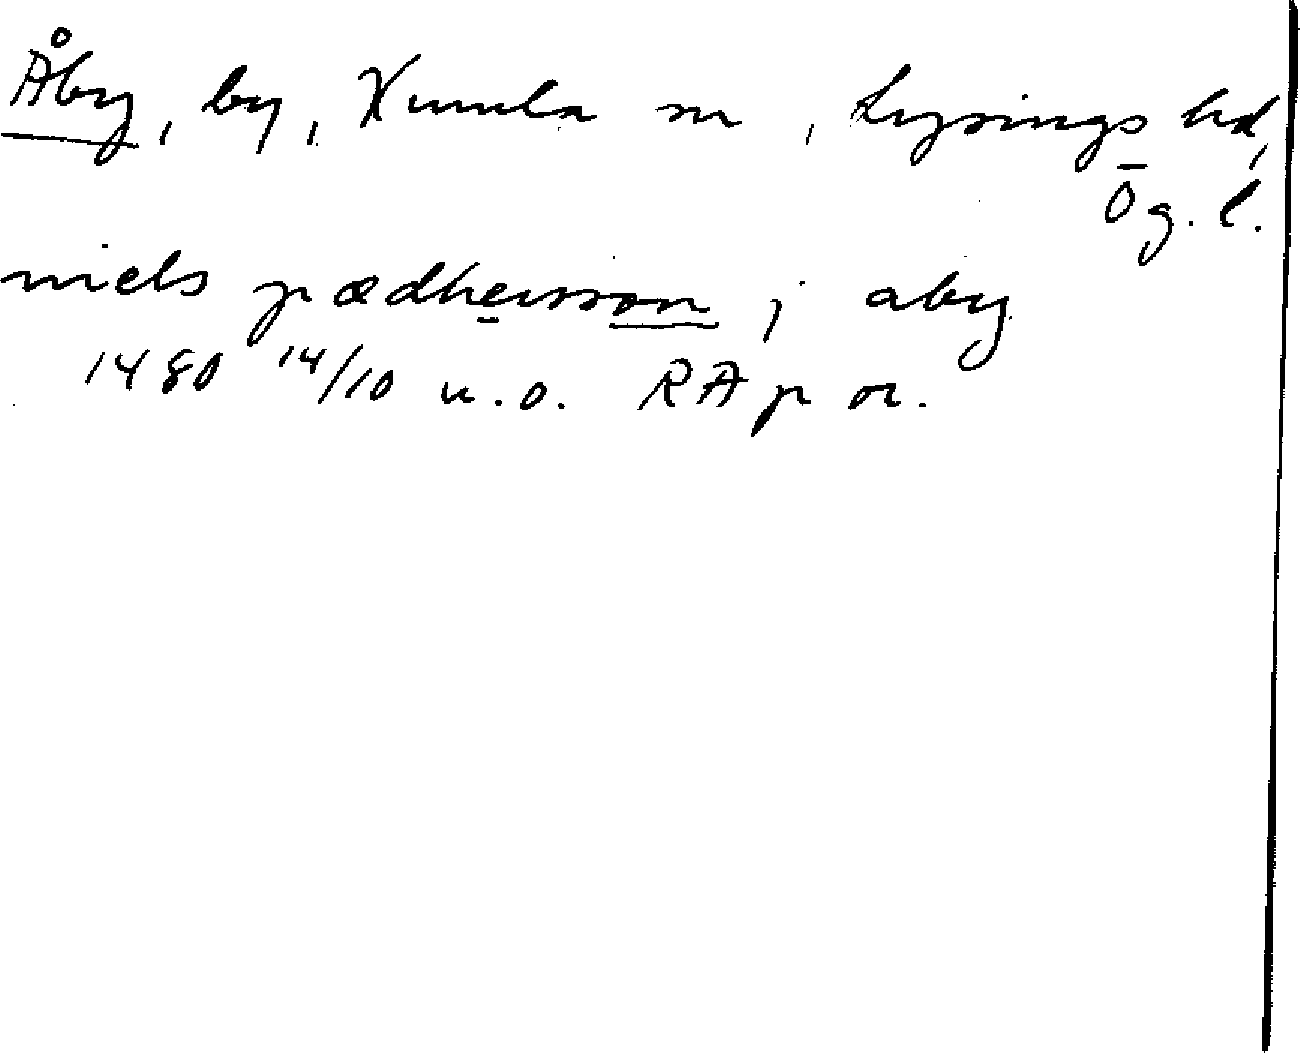 Åby, by, Kumla sn, Lysings hd,
Ög. l.
niels pædhersson j aby
1480 14/10 u.o. RA p or.